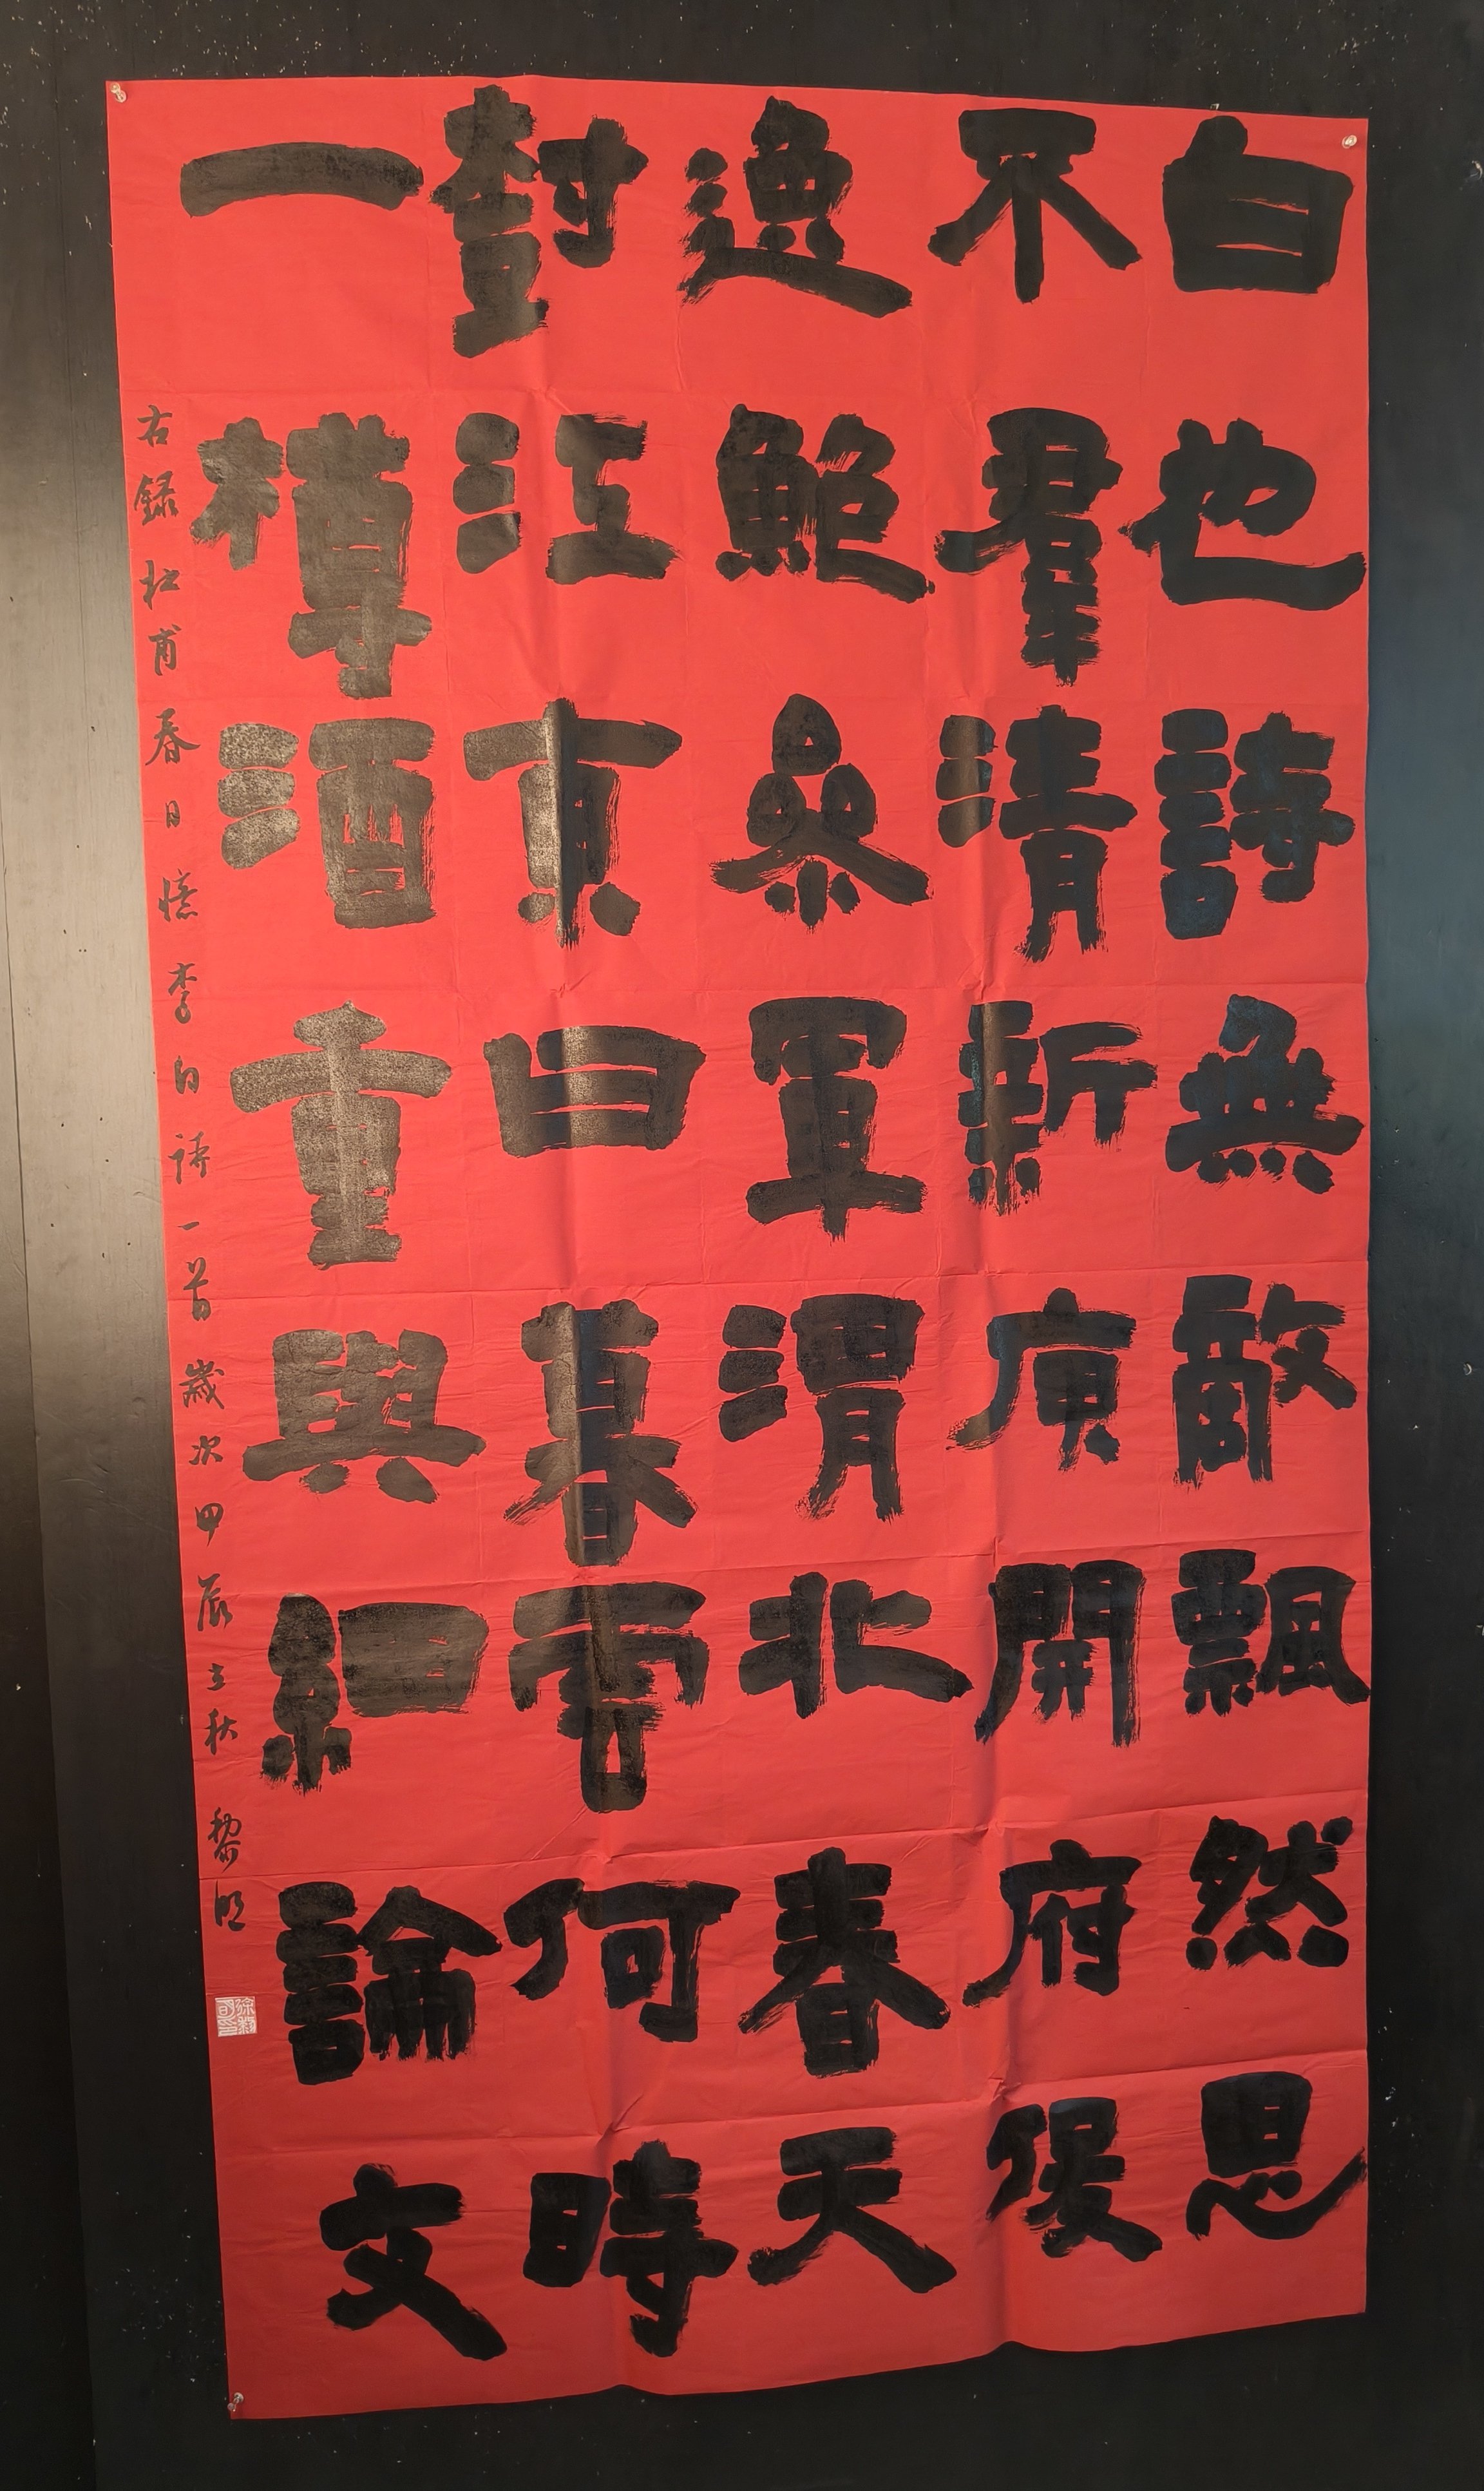 白也詩無敵飄然思
不羣清新庾開府俊
逸鮑參軍渭北春天
樹江東日暮雲何時
一樽酒重與細論文
右録杜甫春日憶李白詩一首歲次甲辰立秋黎明